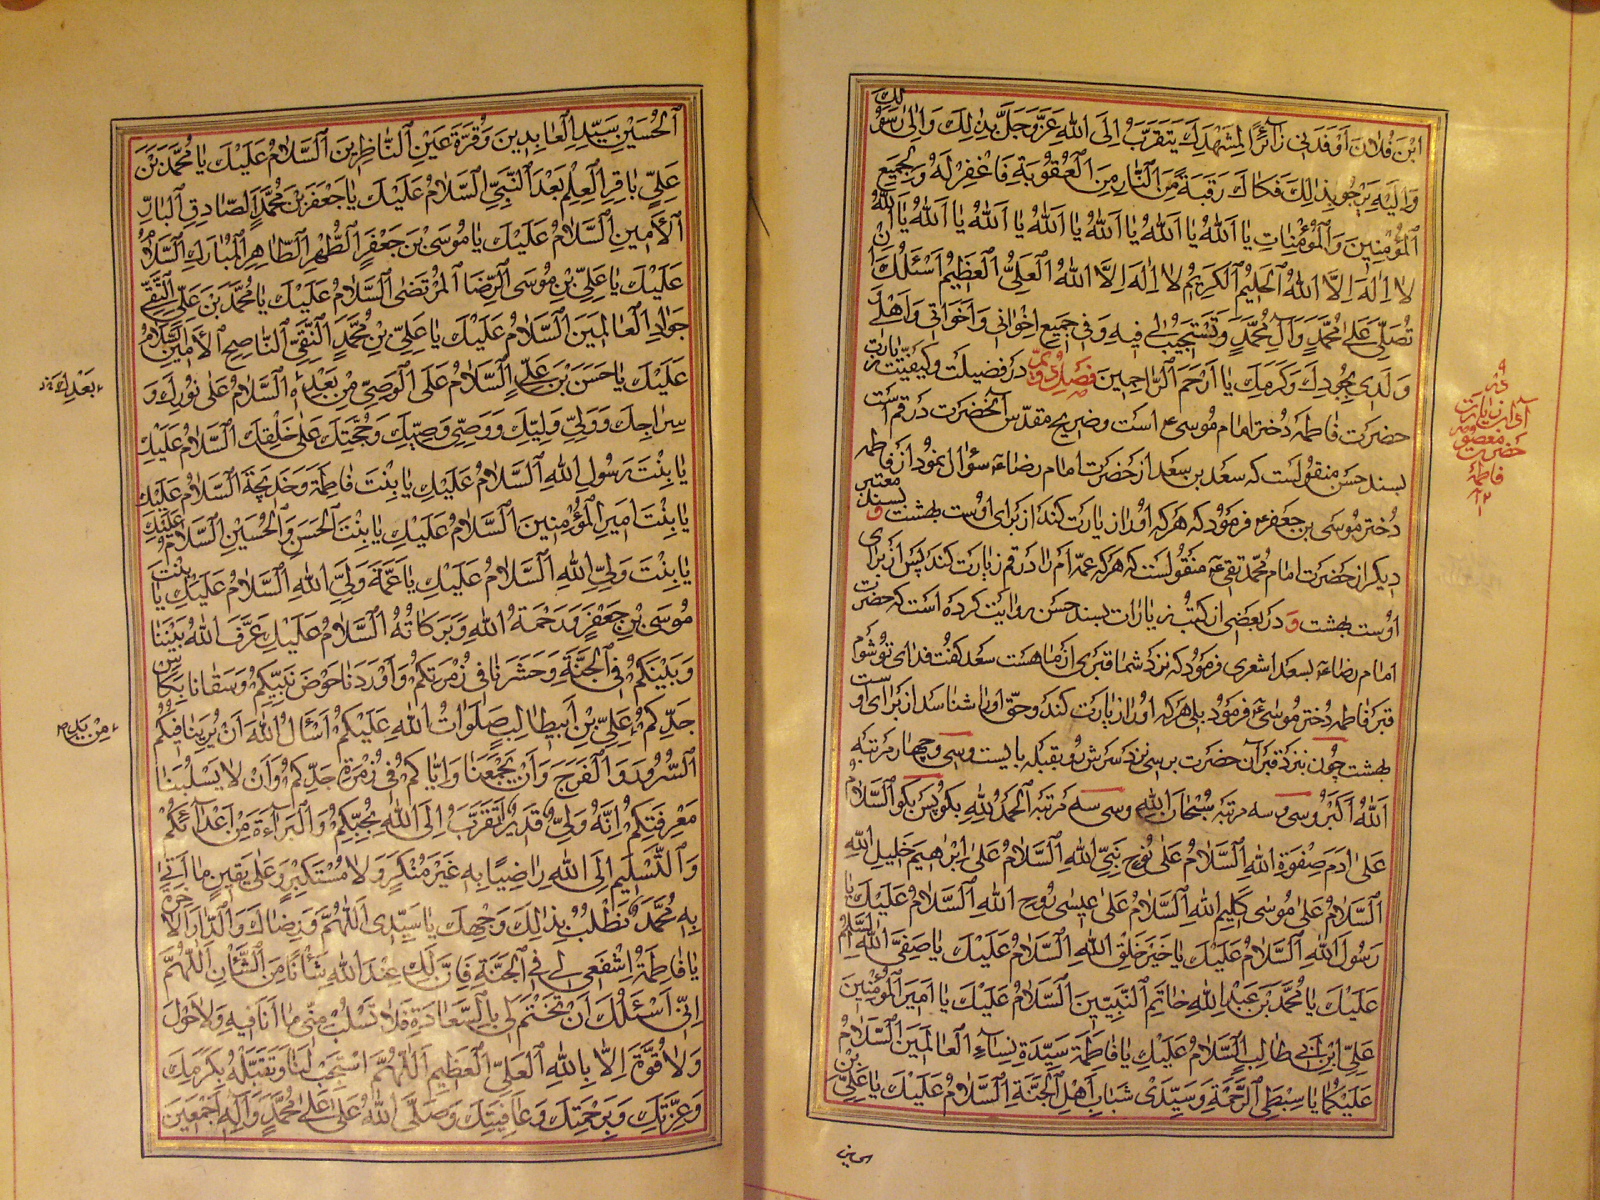 ابْنَ فُلَانٍ أَوْفَدَنِی زَائِرًا لِمَشْهَدِكَ یَتَقَرَّبُ إِلَی اللهِ عَزَّ وَجَلَّ بِذٰلِكَ وَإِلیٰ رَسُولِكَ
وَإِلَیْهِ یَرْجُو بِذٰلِكَ فَكَاكَ رَقَبَةٍ مِنَ النَّارِ مِنَ الْعُقُوبَةِ فَاغْفِرْ لَهُ وَلِجَمِیعِ
الْمُؤْمِنِینَ وَالْمُؤْمِنَاتِ یَا اَللهُ یَا اَللهُ یَا اَللهُ یَا اَللهُ یَا اَللهُ یَا اَللهُ یَا اَللهُ
لَا إِلٰهَ إِلَّا اللهُ الْحَلِیمُ الْكَرِیمُ لَا إِلٰهَ إِلَّا اللهُ الْعَلِیُّ الْعَظِیمُ اَسْئَلُكَ اَنْ
تُصَلِّیَ عَلیٰ مُحَمَّدٍ وَآلِ مُحَمَّدٍ وَتَسْتَجِیبَ لِی فِیهِ وَفِی جَمِیعِ اِخْوَانِی وَاَخَوَاتِی وَاَهْلِی
وَوَلَدِی بِجُودِكَ وَكَرَمِكَ یَا اَرْحَمَ الرَّاحِمِینَ فصل دویم در فضیلت و کیفیت زیارت
حضرت فاطمه دختر امام موسی ع است و ضریح مقدّس آنحضرت در قم است
بسند حسن منقولست که سعد بن سعد از حضرت امام رضا ع سؤال نمود از فاطمه
دختر موسی بن جعفر ع فرمود که هر که او را زیارت کند از برای اوست بهشت و بسند معتبر
دیگر از حضرت امام محمد تقی ع منقولست که هر که عمّه ام را در قم زیارت کند پس از برای
اوست بهشت و در بعضی از کتب زیارات بسند حسن روایت کرده است که حضرت
امام رضا ع بسعد اشعری فرمود که نزد شما قبری از ما هست سعد گفت فدای تو شوم
قبر فاطمه دختر موسی ع فرمود بلی هر که او را زیارت کند و حقّ او را شناسد از برای اوست
بهشت چون بنزد قبر آن حضرت برسی نزد سرش رو بقبله بایست و سی و چهار مرتبه
اَللهُ اَكْبَرُ و سی و سه مرتبه سُبْحَانَ اللهِ و سی سه مرتبه اَلْحَمْدُ لِلّٰهِ بگو پس بگو اَلسَّلَامُ
عَلیٰ اٰدَمَ صِفْوَةِ اللهِ اَلسَّلَامُ عَلیٰ نُوحٍ نَبِیِّ اللهِ اَلسَّلَامُ عَلیٰ اِبْرٰهِیمَ خَلِیلِ اللهِ
اَلسَّلَامُ عَلیٰ مُوسیٰ كَلِیمِ اللهِ اَلسَّلَامُ عَلیٰ عِیسیٰ رُوحِ اللهِ اَلسَّلَامُ عَلَیْكَ یَا
رَسُولَ اللهِ اَلسَّلَامُ عَلَیْكَ یَا خَیْرَ خَلْقِ اللهِ اَلسَّلَامُ عَلَیْكَ یَا صَفِیَّ اللهِ اَلسَّلَامُ
عَلَیْكَ یَا مُحَمَّدَ بْنَ عَبْدِ اللهِ خَاتَمَ النَّبِیِّینَ اَلسَّلَامُ عَلَیْكَ یَا اَمِیرَ الْمُؤْمِنِینَ
عَلِیَّ ابْنَ اَبِی طَالِبٍ اَلسَّلَامُ عَلَیْكِ یَا فَاطِمَةُ سَیِّدَةَ نِسَاءِ الْعَالَمِینَ اَلسَّلَامُ
عَلَیْكُمَا یَا سِبْطَیِ الرَّحْمَةِ وَسَیِّدَیْ شَبَابِ اَهْلِ الْجَنَّةِ اَلسَّلَامُ عَلَیْكَ یَا عَلِیَّ بْنَ
زیارت
حضرت معصومه
فاطمهٔ
الحسین
اَلْحُسَیْنِ سَیِّدَ الْعَابِدِینَ وَقُرَّةَ عَیْنِ النَّاظِرِینَ اَلسَّلَامُ عَلَیْكَ یَا مُحَمَّدَ بْنَ
عَلِیٍّ بَاقِرَ الْعِلْمِ بَعْدَ النَّبِیِّ اَلسَّلَامُ عَلَیْكَ یَا جَعْفَرَ بْنَ مُحَمَّدٍ الصَّادِقَ الْبَارَّ
الْاَمِینَ اَلسَّلَامُ عَلَیْكَ یَا مُوسَی بْنَ جَعْفَرٍ الطُّهْرَ الطَّاهِرَ الْمُبَارَكَ اَلسَّلَامُ
عَلَیْكَ یَا عَلِیَّ بْنَ مُوسَی الرِّضَا الْمُرْتَضیٰ اَلسَّلَامُ عَلَیْكَ یَا مُحَمَّدَ بْنَ عَلِیٍّ التَّقِیَّ
جَوَادَ الْعَالَمِینَ اَلسَّلَامُ عَلَیْكَ یَا عَلِیَّ بْنَ مُحَمَّدٍ النَّقِیَّ النَّاصِحَ الْاَمِینَ اَلسَّلَامُ
عَلَیْكَ یَا حَسَنَ بْنَ عَلِیٍّ اَلسَّلَامُ عَلَی الْوَصِیِّ مِنْ بَعْدِهِ اَلسَّلَامُ عَلیٰ نُورِكَ وَ
سِرَاجِكَ وَوَلِیِّ وَلِیِّكَ وَوَصِیِّ وَصِیِّكَ وَحُجَّتِكَ عَلیٰ خَلْقِكَ اَلسَّلَامُ عَلَیْكِ
یَا بِنْتَ رَسُولِ اللهِ اَلسَّلَامُ عَلَیْكِ یَا بِنْتَ فَاطِمَةَ وَخَدِیجَةَ اَلسَّلَامُ عَلَیْكِ
یَا بِنْتَ اَمِیرِ الْمُؤْمِنِینَ اَلسَّلَامُ عَلَیْكِ یَا بِنْتَ الْحَسَنِ وَالْحُسَیْنِ اَلسَّلَامُ عَلَیْكِ
یَا بِنْتَ وَلِیِّ اللهِ اَلسَّلَامُ عَلَیْكِ یَا عَمَّةَ وَلِیِّ اللهِ اَلسَّلَامُ عَلَیْكِ یَا بِنْتَ
مُوسَی بْنِ جَعْفَرٍ وَرَحْمَةُ اللهِ وَبَرَكَاتُهُ اَلسَّلَامُ عَلَیْكِ عَرَّفَ اللهُ بَیْنَنَا
وَبَیْنَكُمْ فِی الْجَنَّةِ وَحَشَرَنَا فِی زُمْرَتِكُمْ وَاَوْرَدَنَا حَوْضَ نَبِیِّكُمْ وَسَقَانَا بِكَاْسِ
جَدِّكُمْ عَلِیِّ بْنِ اَبِیطَالِبٍ صَلَوَاتُ اللهِ عَلَیْكُمْ اَسْأَلُ اللهَ اَنْ یُرِیَنَا فِیكُمُ
السُّرُورَ وَالْفَرَجَ وَاَنْ یَجْمَعَنَا وَاِیَّاكُمْ فِی زُمْرَةِ جَدِّكُمْ وَاَنْ لَا یَسْلُبَنَا
مَعْرِفَتَكُمْ اِنَّهُ وَلِیٌّ قَدِیرٌ اَتَقَرَّبُ اِلَی اللهِ بِحُبِّكُمْ وَالْبَرَاءَةِ مِنْ اَعْدَائِكُمْ
وَالتَّسْلِیمِ اِلَی اللهِ رَاضِیًا بِهِ غَیْرَ مُنْكِرٍ وَلَا مُسْتَكْبِرٍ وَعَلیٰ یَقِینِ مَا اَتیٰ
بِهِ مُحَمَّدٌ نَطْلُبُ بِذٰلِكَ وَجْهَكَ یَا سَیِّدِی اَللّٰهُمَّ وَرِضَاكَ وَالدَّارَ الْاٰخِرَةَ
یَا فَاطِمَةُ اشْفَعِی لِی فِی الْجَنَّةِ فَاِنَّ لَكِ عِنْدَ اللهِ شَأْنًا مِنَ الشَّأْنِ اَللّٰهُمَّ
اِنِّی اَسْئَلُكَ اَنْ تَخْتِمَ لِی بِالسَّعَادَةِ فَلَا تَسْلُبْ مِنِّی مَا اَنَا فِیهِ وَلَا حَوْلَ
وَلَا قُوَّةَ اِلَّا بِاللهِ الْعَلِیِّ الْعَظِیمِ اَللّٰهُمَّ اسْتَجِبْ لَنَا وَتَقَبَّلْهُ بِكَرَمِكَ
وَعِزَّتِكَ وَبِرَحْمَتِكَ وَعَافِیَتِكَ وَصَلَّی اللهُ عَلیٰ عَلیٰ مُحَمَّدٍ وَآلِهِ اَجْمَعِینَ
بَعْدِكَ
مِنْ یَدِ